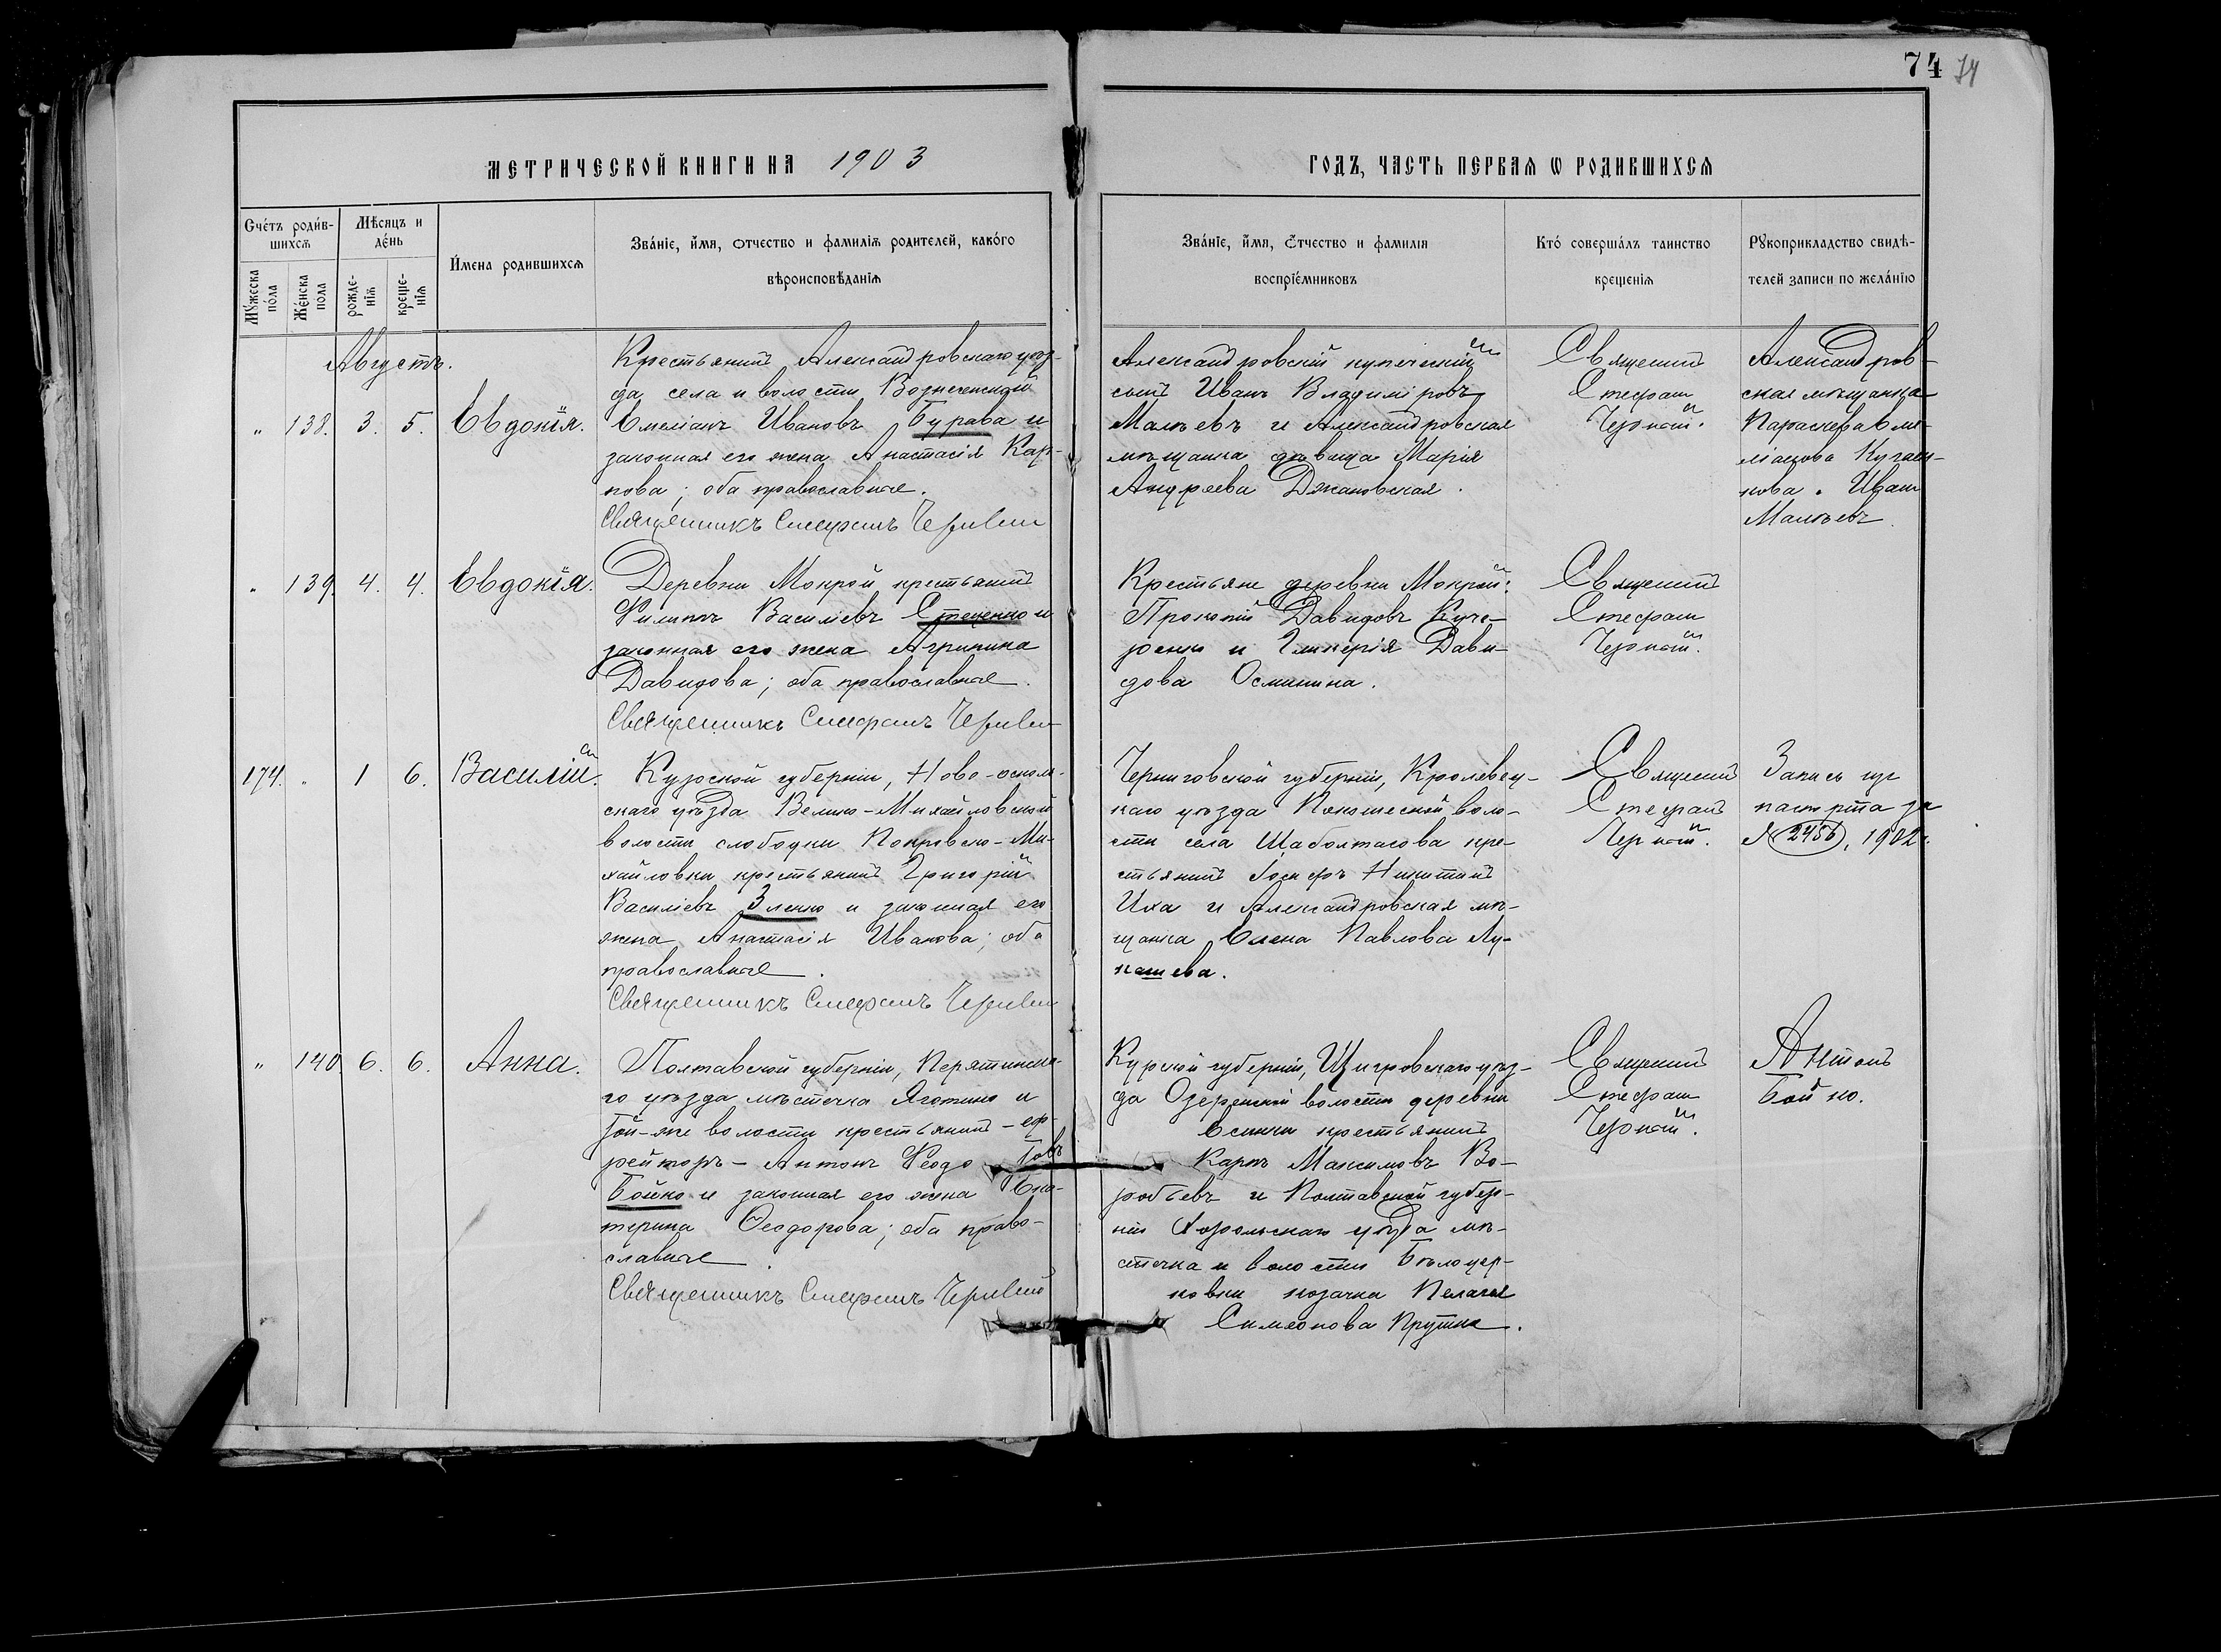 74 74
МЕТРИЧЕСКОЙ КНИГИ НА 1903
ГОДЪ, ЧАСТЬ ПЕРВАЯ Ѡ РОДИВШИХСЯ
Счетъ родившихся
Мужеска пола
Женска пола
Мѣсяцъ и день
рожденія
крещенія
Имена родившихся
Званіе, имя, отчество и фамилія родителей, какого
вѣроисповѣданія
Званіе, имя, отчество и фамилія
воспріемниковъ
Кто совершалъ таинство
крещенія
Рукоприкладство свидѣ-
телей записи по желанію
Августъ.
„ 138. 3. 5. Евдокія.
Крестьянинъ Александровскаго уѣз-
да села и волости Вознесенской
Емеліанъ Ивановъ Бурава и
законная его жена Анастасія Кар-
пова; оба православные.
Священникъ Стефанъ
Александровскій купеческій
сынъ Иванъ Владиміровъ
Малѣевъ и Александровская
мѣщанка дѣвица Марія
Андреева Джановская.
Священникъ
Стефанъ
Александров-
ская мѣщанка
Параскева Еме-
ліанова
Иванъ
Малѣевъ.
„ 139. 4. 4. Евдокія.
Деревни Мокрой крестьянинъ
Филиппъ Василіевъ Стеценко и
законная его жена Агрипина
Давидова; оба православные.
Священникъ Стефанъ
Крестьяне деревни Мокрой:
Прокопій Давидовъ Куче-
ренко и Гликерія Дави-
дова Осминина.
Священникъ
Стефанъ
174. „ 1 6. Василій.
Курской губерніи, Ново-осколь-
скаго уѣзда Велико-Михайловской
волости слободки Покровско-Ми-
хайловки крестьянинъ Григорій
Василіевъ Зленко и законная его
жена Анастасія Иванова; оба
православные.
Священникъ Стефанъ
Черниговской губерніи, Кролевец-
каго уѣзда Понорницкой воло-
сти села Шаболтасова кре-
стьянинъ Іосифъ Никитинъ
Иха и Александровская мѣ-
щанка Елена Павлова Лу-
кашева.
Священникъ
Стефанъ
Запись изъ
паспорта за
№ 2456, 1902
„ 140. 6. 6. Анна.
Полтавской губерніи, Пирятинска-
го уѣзда мѣстечка Яготино и
той-же волости крестьянинъ - еф-
рейторъ - Антонъ Ѳеодо
Бойко и законная его жена Ека-
терина Ѳеодорова; оба право-
славные.
Священникъ Стефанъ
Курской губерніи, Щигровскаго уѣз-
да Озеренской волости деревни
крестьянинъ
Карпъ Максимовъ Во-
робьевъ и Полтавской губер-
ніи Хорольскаго уѣзда мѣ-
стечка и волости Бѣлоцер-
ковки козачка Пелагея
Симеонова Крутка.
Священникъ
Стефанъ
Антонъ
Бойко.